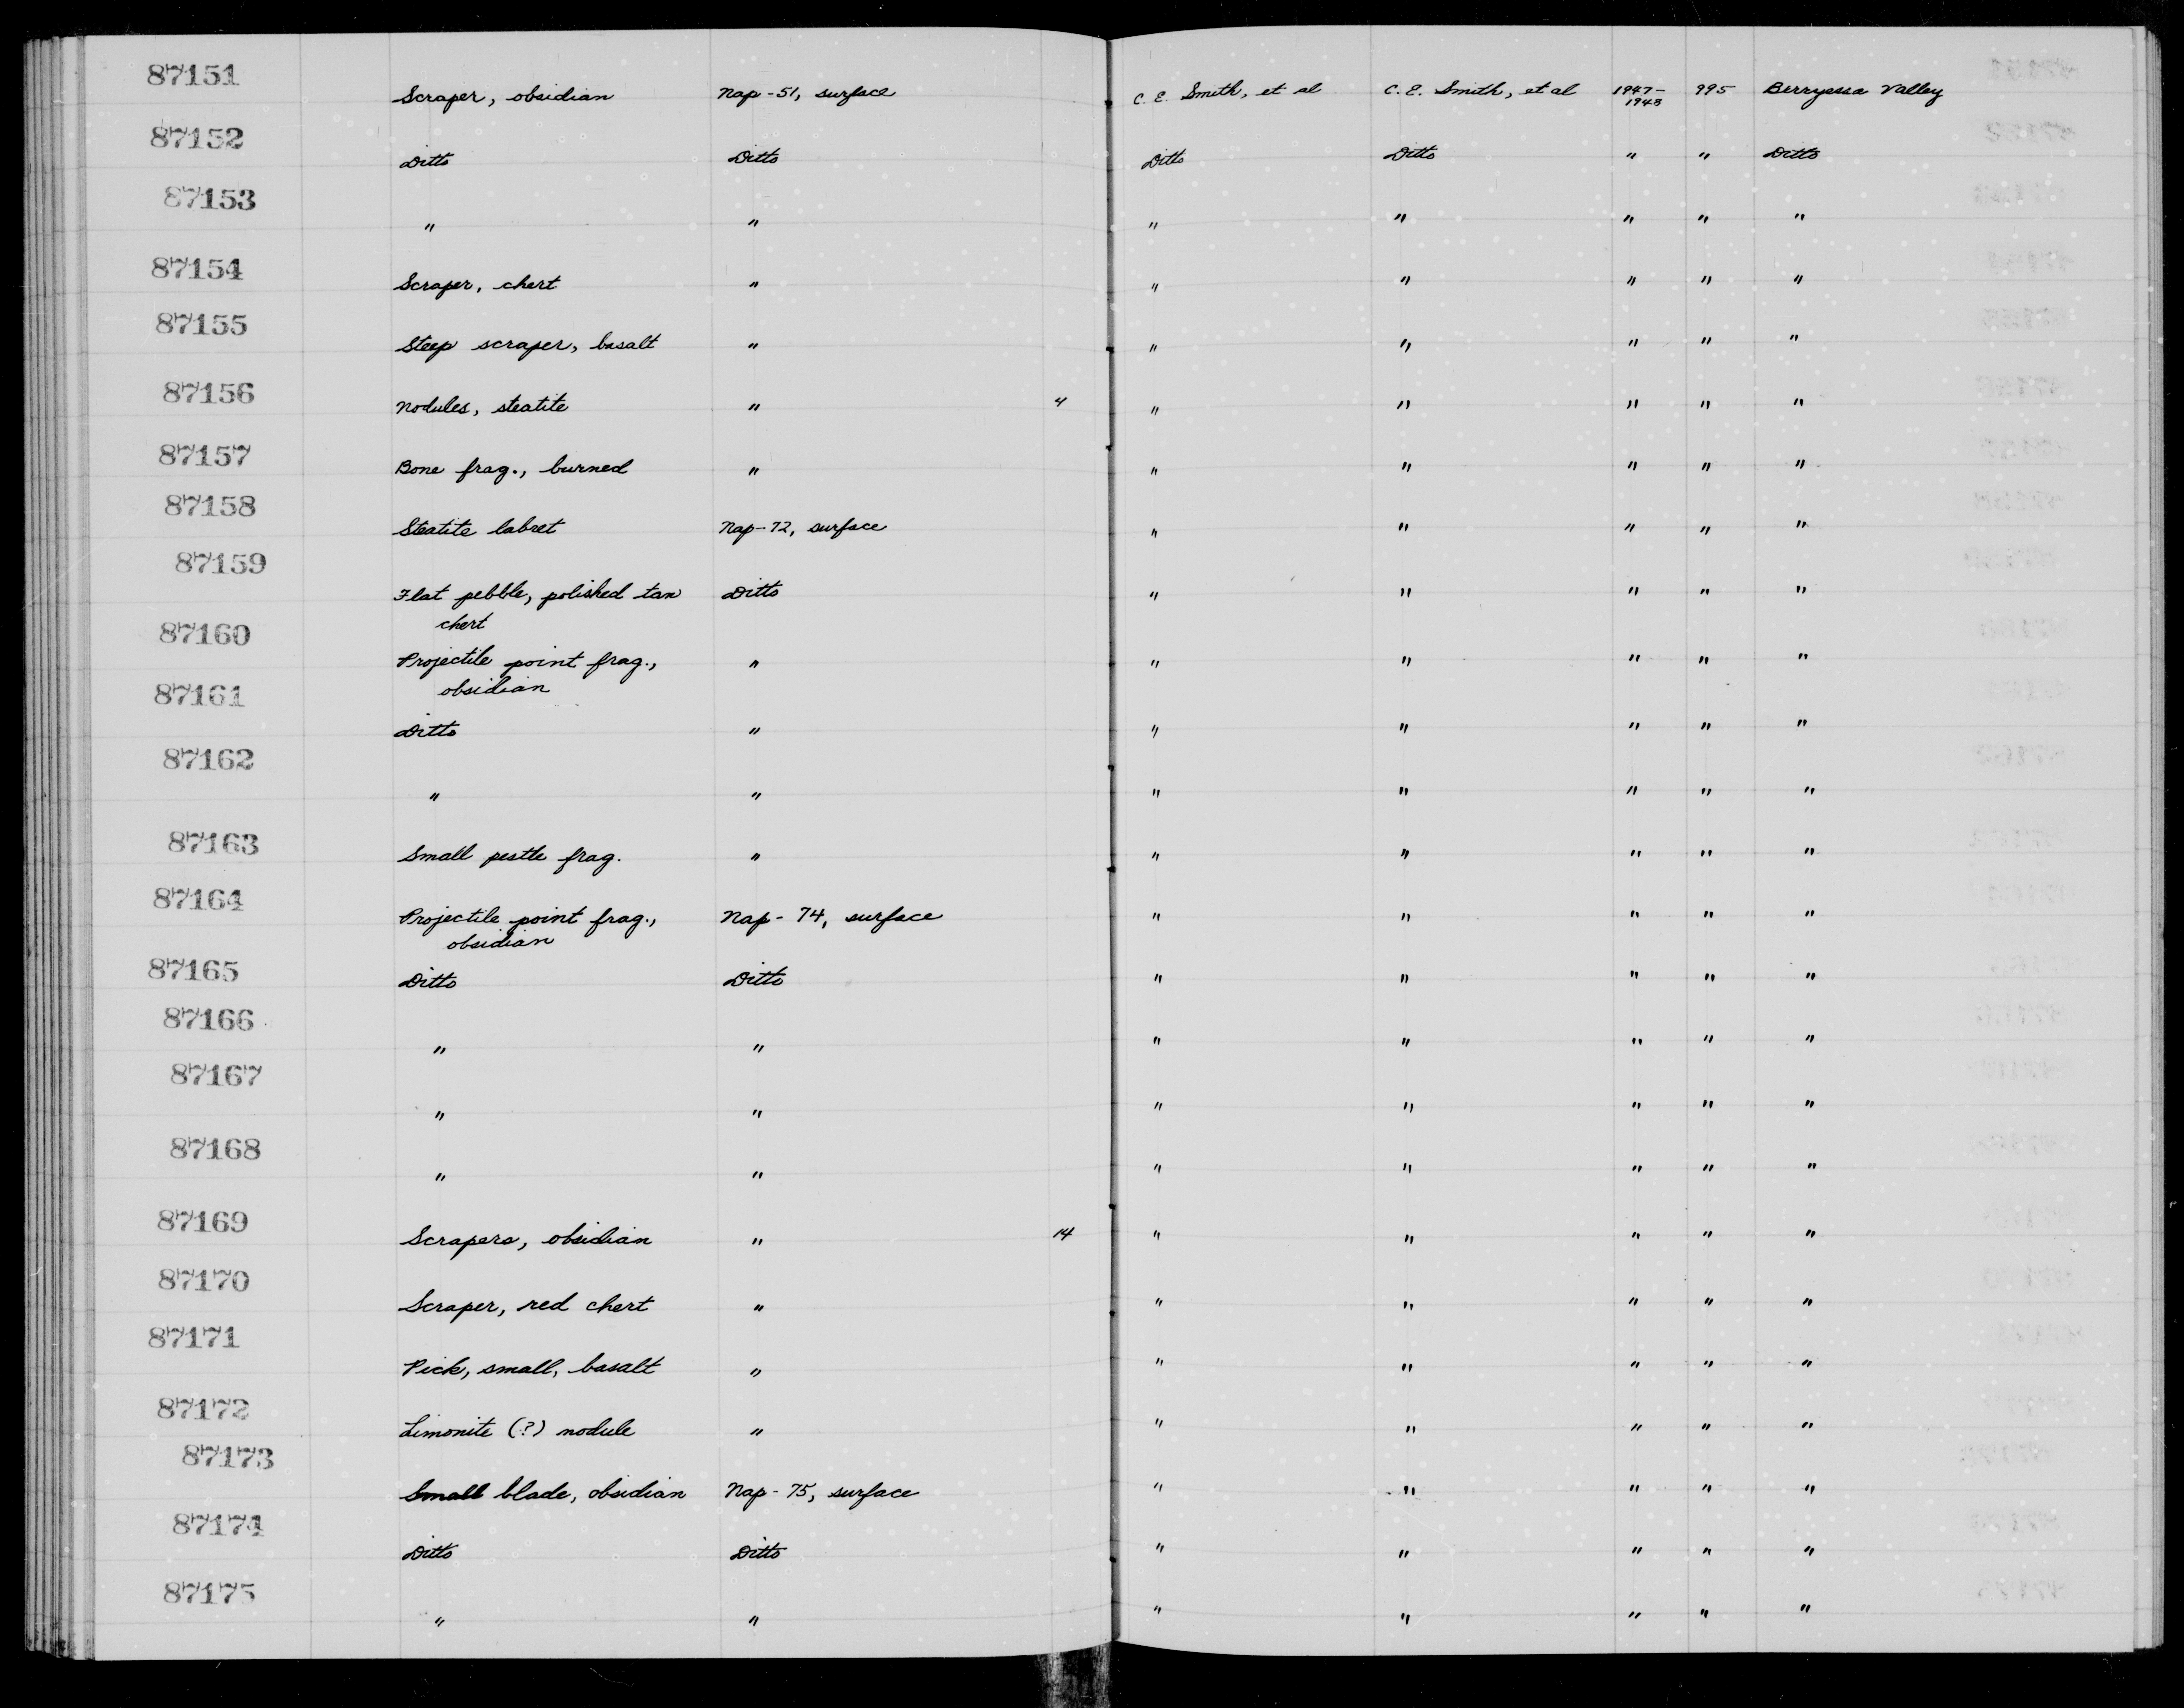 87151 Scraper, obsidian Nap-51, surface C. E. Smith, et al C. E. Smith, et al 1947-1948 995 Berryessa Valley
87152 Ditto Ditto Ditto Ditto " " Ditto
87153 " " " " " " "
87154 Scraper, chert " " " " " "
87155 Steep scraper, basalt " " " " " "
87156 Nodules, steatite " 4 " " " " "
87157 Bone frag., burned " " " " " "
87158 Steatite labret Nap-72, surface " " " " "
87159 Flat pebble, polished tan Ditto " " " " "
chert
87160 Projectile point frag., " " " " " "
obsidian
87161 Ditto " " " " " "
87162 " " " " " " "
87163 Small pestle frag. " " " " " "
87164 Projectile point frag., Nap-74, surface " " " " "
obsidian
87165 Ditto Ditto " " " " "
87166 " " " " " " "
87167 " " " " " " "
87168 " " " " " " "
87169 Scrapers, obsidian " 14 " " " " "
87170 Scraper, red chert " " " " " "
87171 Pick, small, basalt " " " " " "
87172 Limonite (?) nodule " " " " " "
87173 Small blade, obsidian Nap-75, surface " " " " "
87174 Ditto Ditto " " " " "
87175 " " " " " " "